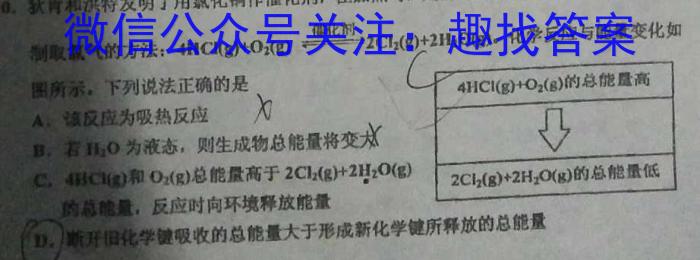 狄肯和洪特发明了用氯化铜作催化剂
微信公众号关注：趣找答案
制取 的方法：4HCl(g)+O₂(g) 催化剂 2Cl₂(g)+2H₂O(g) 化学反应与能量变化如
图所示。下列说法正确的是
A．该反应为吸热反应
B．若 H₂O 为液态，则生成物总能量将变大
C．4HCl(g)和 O₂(g)总能量高于 2Cl₂(g)+2H₂O(g)
的总能量，反应时向环境释放能量
D．断开旧化学键吸收的总能量大于形成新化学键所释放的总能量
4HCl(g)+O₂(g)的总能量高
2Cl₂(g)+2H₂O(g)的总能量低